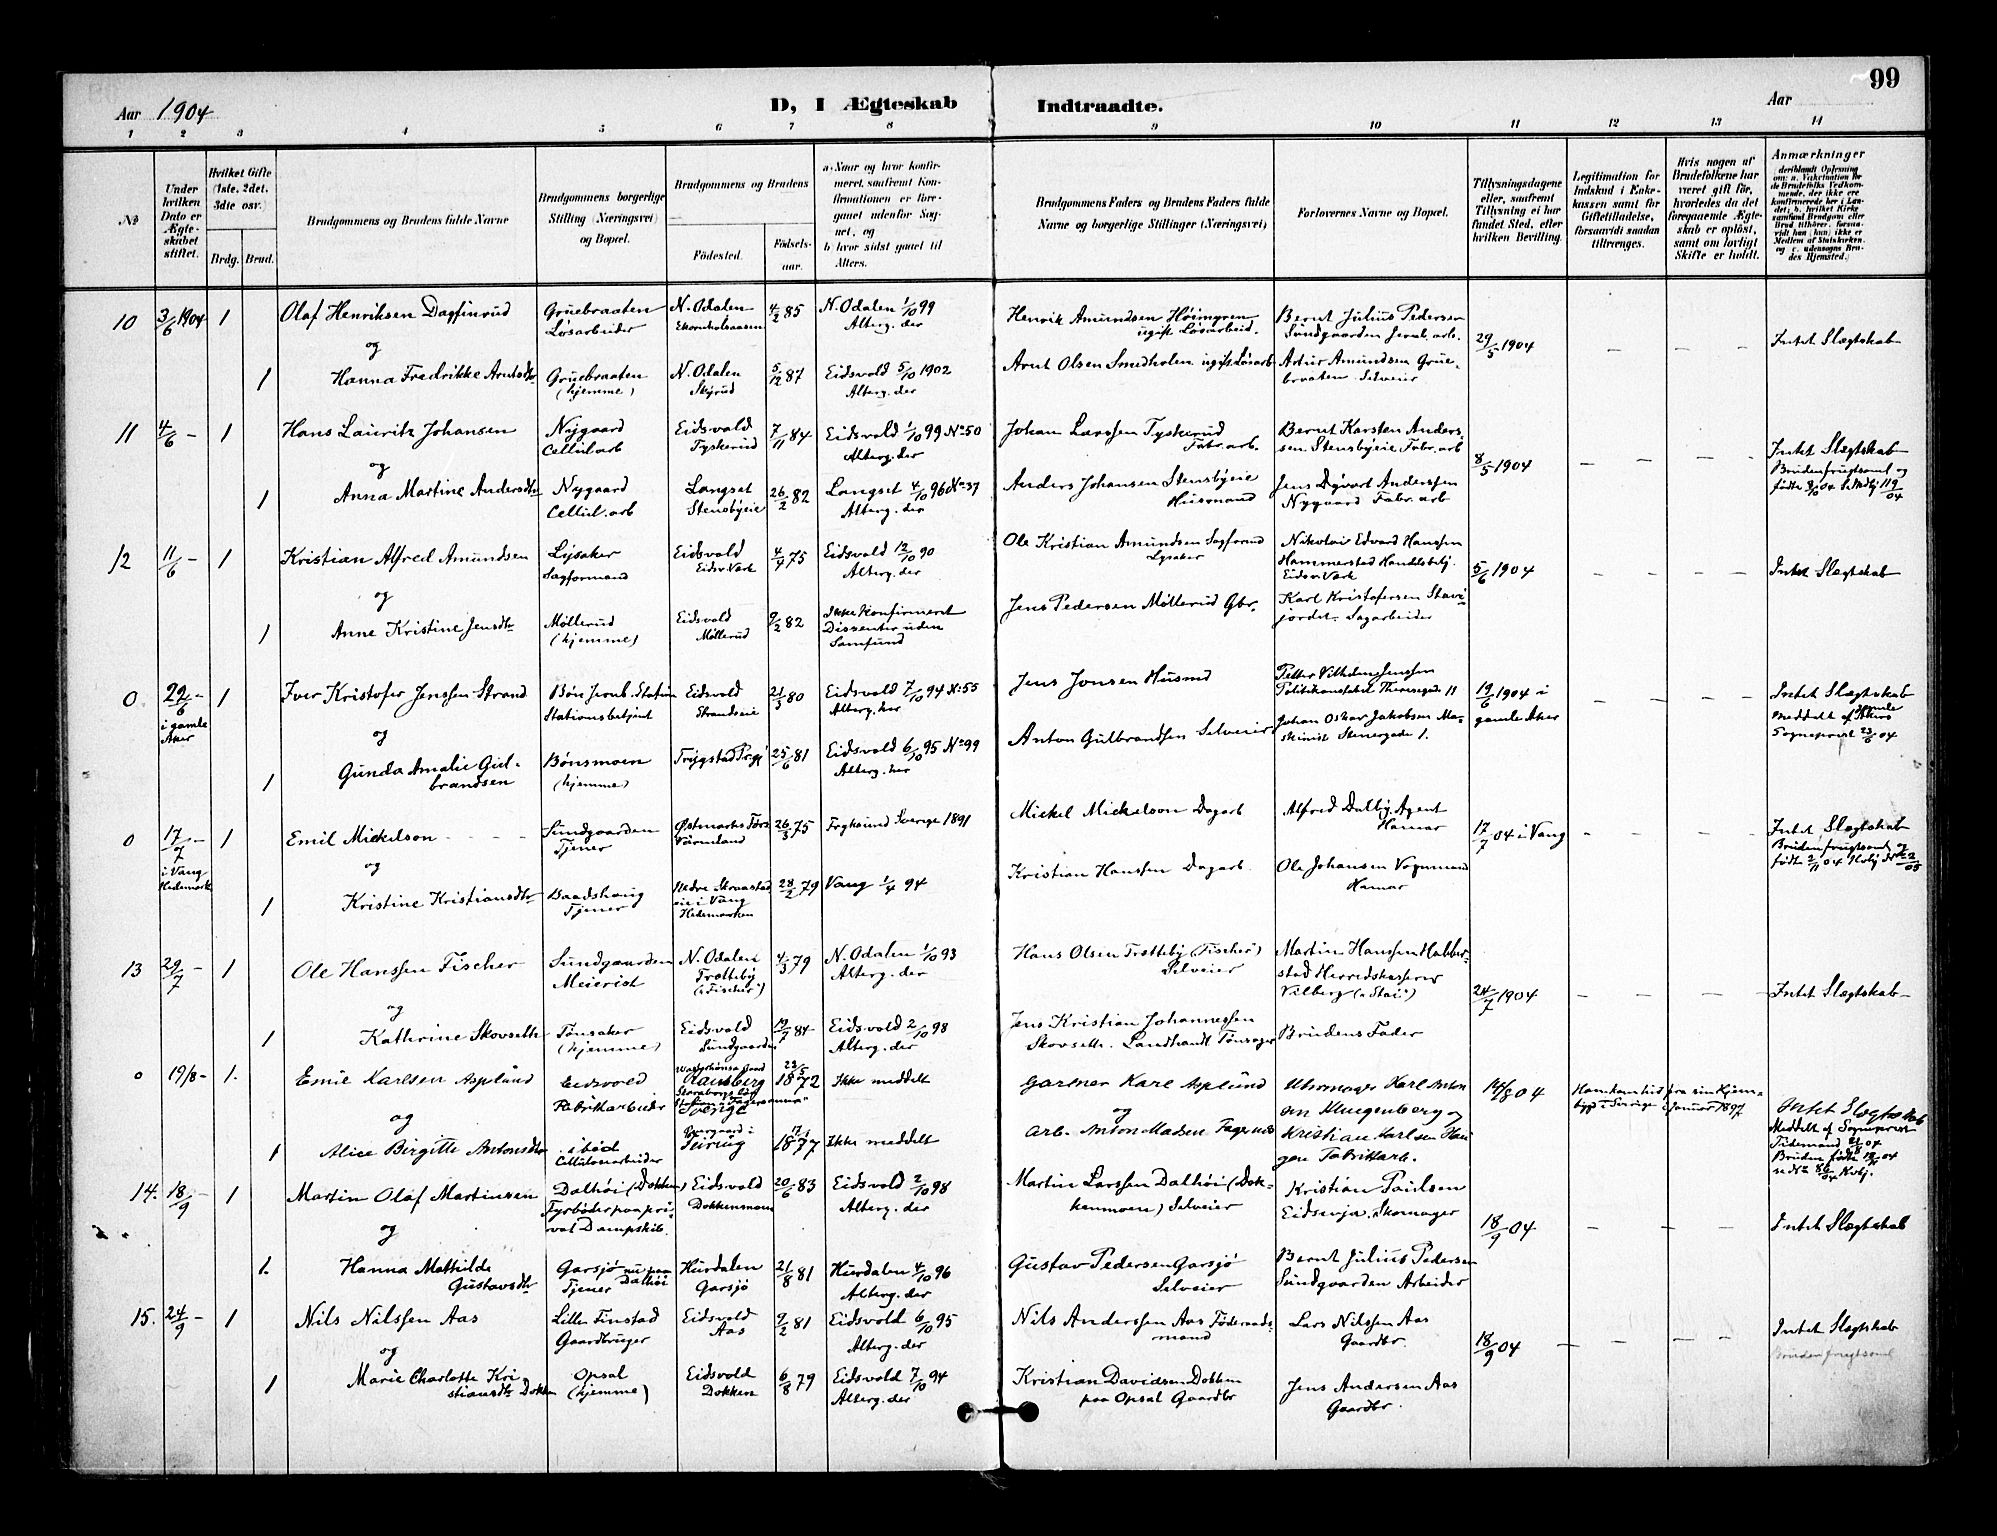 99
Aar 1904 D, I Ægteskab Indtraadte. Aar
1 2 3 4 5 6 7 8 9 10 11 12 13 14
No
Under hvilken Dato er Ægteskabet stiftet.
Hvilket Gifte (1ste, 2det, 3die osv.)
Brdg. Brud.
Brudgommens og Brudens fulde Navne
Brudgommens borgerlige Stilling (Næringsvei) og Bopæl.
Brudgommens og Brudens
Fødested. Fødselsaar.
a. Naar og hvor konfirmeret, samfremt Konfirmationen er foregaaet udenfor Sognet, og
b. hvor sidst gaaet til Alters.
Brudgommens Faders og Brudens Faders fulde Navne og borgerlige Stillinger (Næringsvei)
Forlovernes Navne og Bopæl.
Tillysningsdagene eller, samfremt Tillysning ei har fundet Sted, efter hvilken Bevilling.
Legitimation for Indskud i Enkekassen samt for Giftetilladelse, forsaavidt saadan tiltrænges.
Hvis nogen af Brudefolkene har været gift før, hvorledes da det foregaaende Ægteskab er opløst, samt om lovligt Skifte er holdt.
Anmærkninger
10 3/6 1904 1 Olaf Henriksen Dagfinrud Gruebraaten Løsarbeider N. Odalen 4/2 85 N. Odalen 1/10 99 Alterg. der Henrik Amundsen Høimyren ugift Løsarbeid. Bernt Julius Pedersen Sundgaarden Jernb. arb. 29/5 1904 – – – Intet Slægtskab
og
1 Hanna Fredrikke Arntsdtr Gruebraaten (hjemme) N. Odalen Skyrud 5/12 87 Eidsvold 5/10 1902 Alterg. der Arnt Olsen Smedholen ugift Løsarb Artur Amundsen Gruebraaten Selveier
11 4/6 – 1 Hans Lauritz Johansen Nygaard Cellul. arb Eidsvold Tyskerud 7/11 84 Eidsvold 1/10 99 No 50 Alterg. der Johan Larssen Tyskerud Fabr. arb. Bernt Karsten Anderssen Stensbyeie Fabr. arb 8/5 1904 – – – – Intet Slægtskab Bruden frugtsoml og
og
1 Anna Martine Andersdtr Nygaard Cellul. arb Langset Stensbyeie 26/2 82 Langset 4/10 96 No 37 Alterg. der Anders Johansen Stensbyeie Husmand Jens Anderssen Nygaard Fabr. arb
12 11/6 – 1 Kristian Alfred Amundsen Lysaker Sagformand Eidsvold Eidsv. Værk 4/7 75 Eidsvold 12/10 90 Alterg. der Ole Kristian Amundsen Sagforud Lysaker Nikolai Edvard Hanssen Hammerstad Handelsbtj. Eidsv. Værk 5/6 1904 – – – Intet Slægtskab
og
1 Anne Kristine Jensdtr Møllerud (hjemme) Eidsvold Møllerud 9/2 82 Ikke Konfirmeret Dissenter uden Samfund Jens Pedersen Møllerud Gbr. Karl Kristofersen Stavijordet. Sagarbeider
0. 22/6 – i gamle Aker 1 Iver Kristofer Jenssen Strand Bøn Jernb. Station Stationsbetjent Eidsvold Strandseie 21/3 80 Eidsvold 7/10 94 No 55 Alterg. her Jens Jonsen Husmd Petter Vilhelm Jenssen Politikonstabel Theresegade 11 19/6 1904 i gamle Aker – – – Intet Slægtskab Meddelt af gamle Akers Sogneprest 23/6 04
og
1 Gunda Amalie Gulbrandsen Bønsmoen (hjemme) Trygstad Prgj 25/6 81 Eidsvold 6/10 95 No 99 Alterg. her Anton Gulbrandsen Selveier Johan Oskar Jakobsen Maskinist Stenergade 1.
0 17/7 – i Vang Hedemark 1 Emil Mickelson Sundgaarden Tjener Østmarks Førs Värmeland 26/3 75 Fryksund Sverige 1891 Mickel Mickelson Dagarb Alfred Dalby Agent Hamar 17/7 04 i Vang – – – Intet Slægtskab Bruden frugtsoml og
og
1 Kristine Kristiansdtr Baadshaug Tjener Nedre Skraastad eie i Vang Hedemarken 28/2 79 Vang 1/4 94 Kristian Hanssen Dagarb. Ole Johansen Vognmand Hamar
13 29/7 – 1 Ole Hanssen Fischer Sundgaarden Meierist N. Odalen Trøtteby ("Fischer") 4/3 79 N. Odalen 1/10 93 Alterg. der Hans Olsen Trøtteby ("Fischer") Selveier Martin Hanssen Habberstad Herredskasserer Vilberg ("Stai") 24/7 1904 – – – – Intet Slægtskab –
og
1 Kathrine Skovseth Tønsaker (hjemme) Eidsvold Sundgaarden 19/7 84 Eidsvold 2/10 98 Alterg. der Jens Kristian Johannessen Skovseth. Landhandl Tønsager Brudens Fader
0 19/8 – 1. Emil Karlsen Asplund Eidsvold Fabrikarbeider Ransberg Sverige 23/5 1872 Ikke meddelt Gartner Karl Asplund Uhrmager Karl Anton Klugenberg og 14/8 04 fra sin Hjembygd i Sverige Januar 1897 Intet Slægtskab Meddelt af Sogneprest Tidemand
og
1 Alice Birgitte Antonsdtr ibid Cellulosearbeider 1877 Ikke meddelt Arb. Anton Madsen Kristian Karlsen Haugen Fabrikarb.
14. 18/9 – 1 Martin Olaf Martinsen Dalhøi (Dokken) Fyrbøder paa privat Dampskib. Eidsvold Dokkenmoen 20/6 83 Eidsvold 2/10 98 Alterg. der Martin Larssen Dalhøi (Dokkenmoen) Selveier Kristian Paulsen Eidsvoja. Skomager 18/9 04 – – – Intet Slægtskab
og
1. Hanna Mathilde Gustavsdtr Garsjø nu paa Dalhøi Tjener Hurdalen Garsjø 21/8 81 Hurdalen 4/10 96 Alterg. der Gustav Pedersen Garsjø Selveier Bernt Julius Pedersen Sundgaarden Arbeider
15. 24/9 – 1 Nils Nilssen Aas Lille Finstad Gaardbruger Eidsvold Aas 9/2 81 Eidsvold 6/10 95 Alterg. der Nils Anderssen Aas Føderaadsmand Lars Nilssen Aas Gaardbr. 18/9 04 – – – – Intet Slægtskab Bruden frugtsoml
og
1 Marie Charlotte Kristiansdtr Dokken Opsal (hjemme) Eidsvold Dokken 6/8 79 Eidsvold 7/10 94 Alterg. der Kristian Davidsen Dokken paa Opsal Gaardbr Jens Andersen Aas Gaardbr.